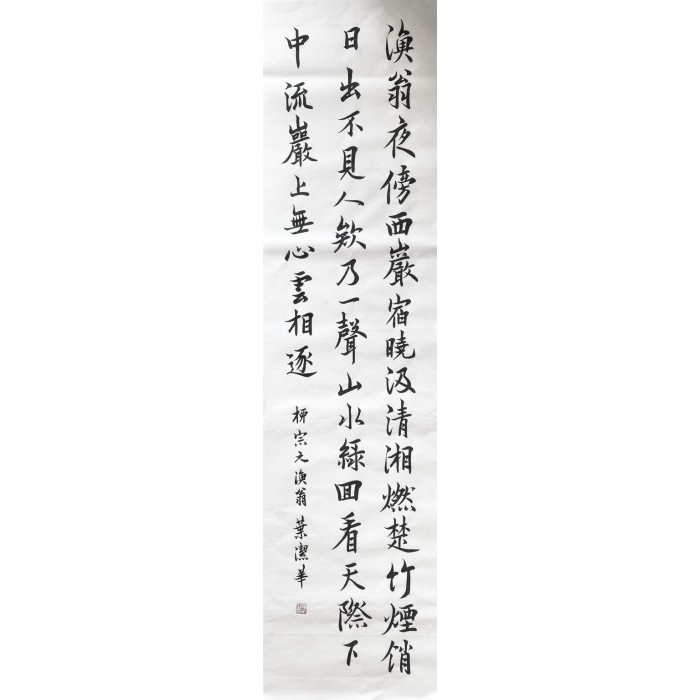 漁翁夜傍西巖宿曉汲清湘燃楚竹煙銷
日出不見人欸乃一聲山水綠回看天際下
中流巖上無心雲相逐
柳宗元漁翁 葉潔華